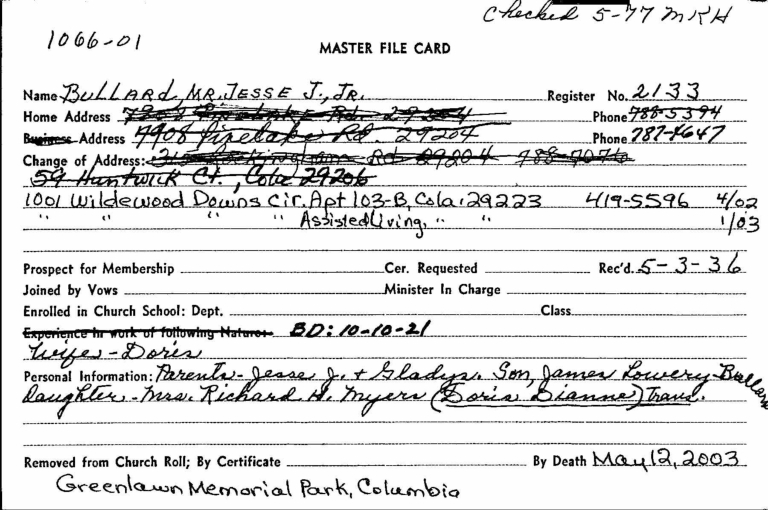 Checked 5-77 MKH
1066-01
MASTER FILE CARD
Name BULLARD, MR. JESSE J., JR. Register No. 2133
Home Address Rd. 29204 Phone 788-5394
Business Address 7908 Pinelake Rd. 29204 Phone 787-4647
Change of Address: Rd 29204 788-7076
59 Huntwick Ct., Cola 29206
1001 Wildewood Downs Cir. Apt 103-B, Cola. 29223 419-5596 4/02
" " " " Assisted Living, " " 1/03
Prospect for Membership Cer. Requested Rec'd. 5-3-36
Joined by Vows Minister In Charge
Enrolled in Church School: Dept. Class
Experience in work of following Nature: BD: 10-10-21
Wife - Doris
Personal Information: Parents - Jesse J. + Gladys. Son, James Lowery Bullard
Daughter - Mrs. Richard H. Myers (Doris Dianne) Trans.
Removed from Church Roll; By Certificate By Death May 12, 2003
Greenlawn Memorial Park, Columbia